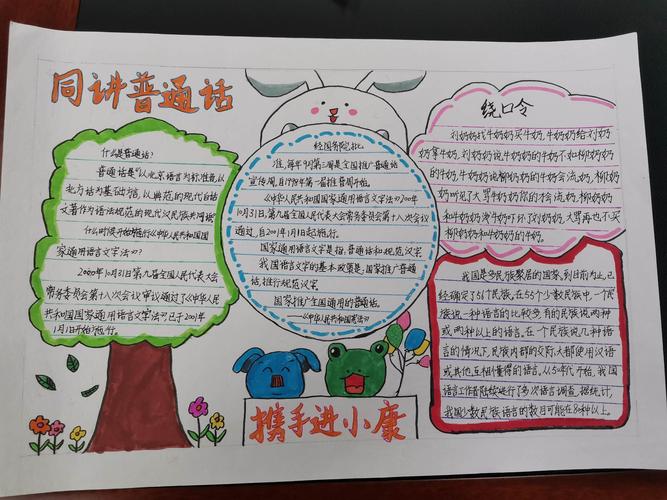 同讲普通话
什么是普通话?
普通话是"以北京语言为标准音,以
北方话为基础方言,以典范的现代白话
文著作为语法规范的现代汉民族共同语"
什么时候开始施行《中华人民共和国国
家通用语言文字法》?
2000年10月31日第九届全国人民代表大会
常务委员会第十八次会议审议通过了《中华人民
共和国国家通用语言文字法》已于2001年
1月1日开始施行。
经国务院批
准,每年9月第三周是全国推广普通话
宣传周,自1998年第一届推普周开始。
《中华人民共和国国家通用语言文字法》2000年
10月31日,第九届全国人民代表大会常务委员会第十八次会议
通过,自2001年1月1日起施行。
国家通用语言文字是指,普通话和规范汉字
我国语言文字的基本政策是,国家推广普通
话,推行规范汉字
国家推广全国通用的普通话。
——《中华人民共和国宪法》
绕口令
刘奶奶找牛奶奶买牛奶,牛奶奶给刘奶
奶拿牛奶,刘奶奶说牛奶奶的牛奶不如柳奶奶
的牛奶,牛奶奶说柳奶奶的牛奶会流奶,柳奶奶
听见了大骂牛奶奶你的才会流奶,柳奶奶
和牛奶奶泼牛奶吓坏了刘奶奶,大骂再也不买
柳奶奶和牛奶奶的牛奶。
我国是多民族聚居的国家,到目前为止,已
经确定了56个民族,在55个少数民族中,一个民
族说一种语言的比较多,有的民族说两种
或两种以上的语言。在一个民族说几种语
言的情况下,民族内部的交际,大都使用汉语
或其他互相懂得的语言,从50年代开始,我国
语言工作者陆续进行了多次语言调查,据统计,
我国少数民族语言的数目可能在80种以上。
携手进小康